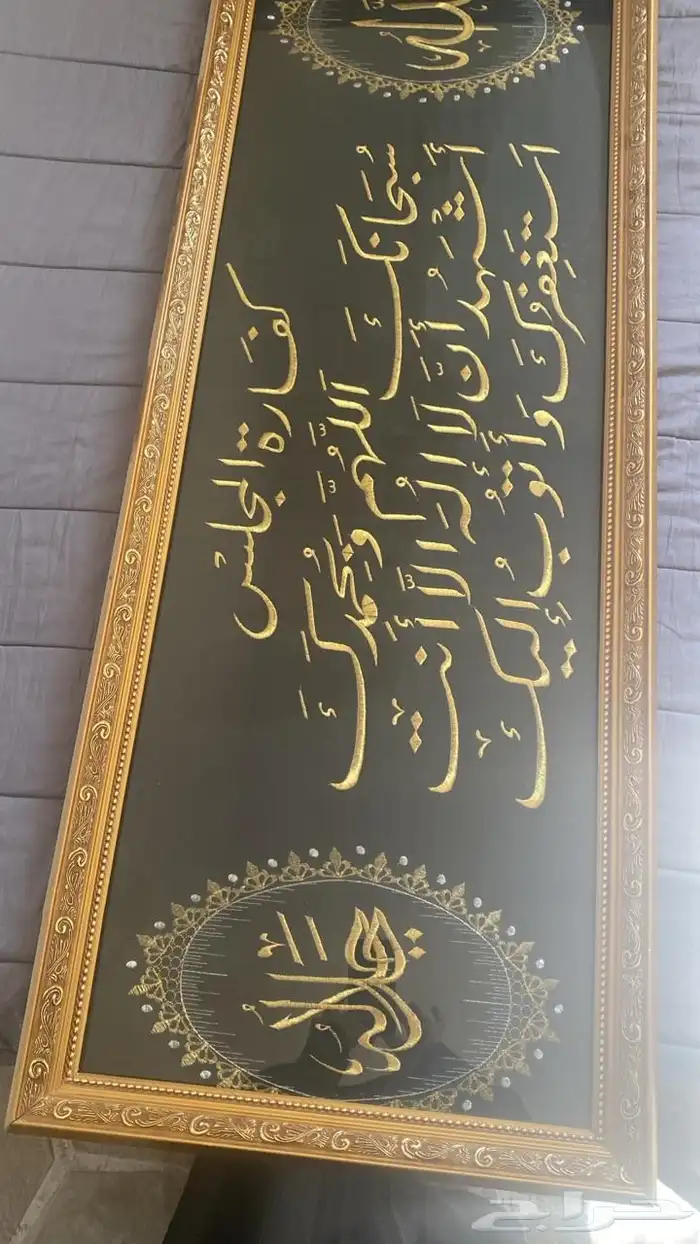 الله
كفارة المجلس
سُبْحَانَكَ اللَّهُمَّ وَبِحَمْدِكَ
أَشْهَدُ أَنَّ لَا إِلَهَ إِلَّا أَنْتَ
أَسْتَغْفِرُكَ وَأَتُوبُ إِلَيْكَ
جل جلاله
حراج